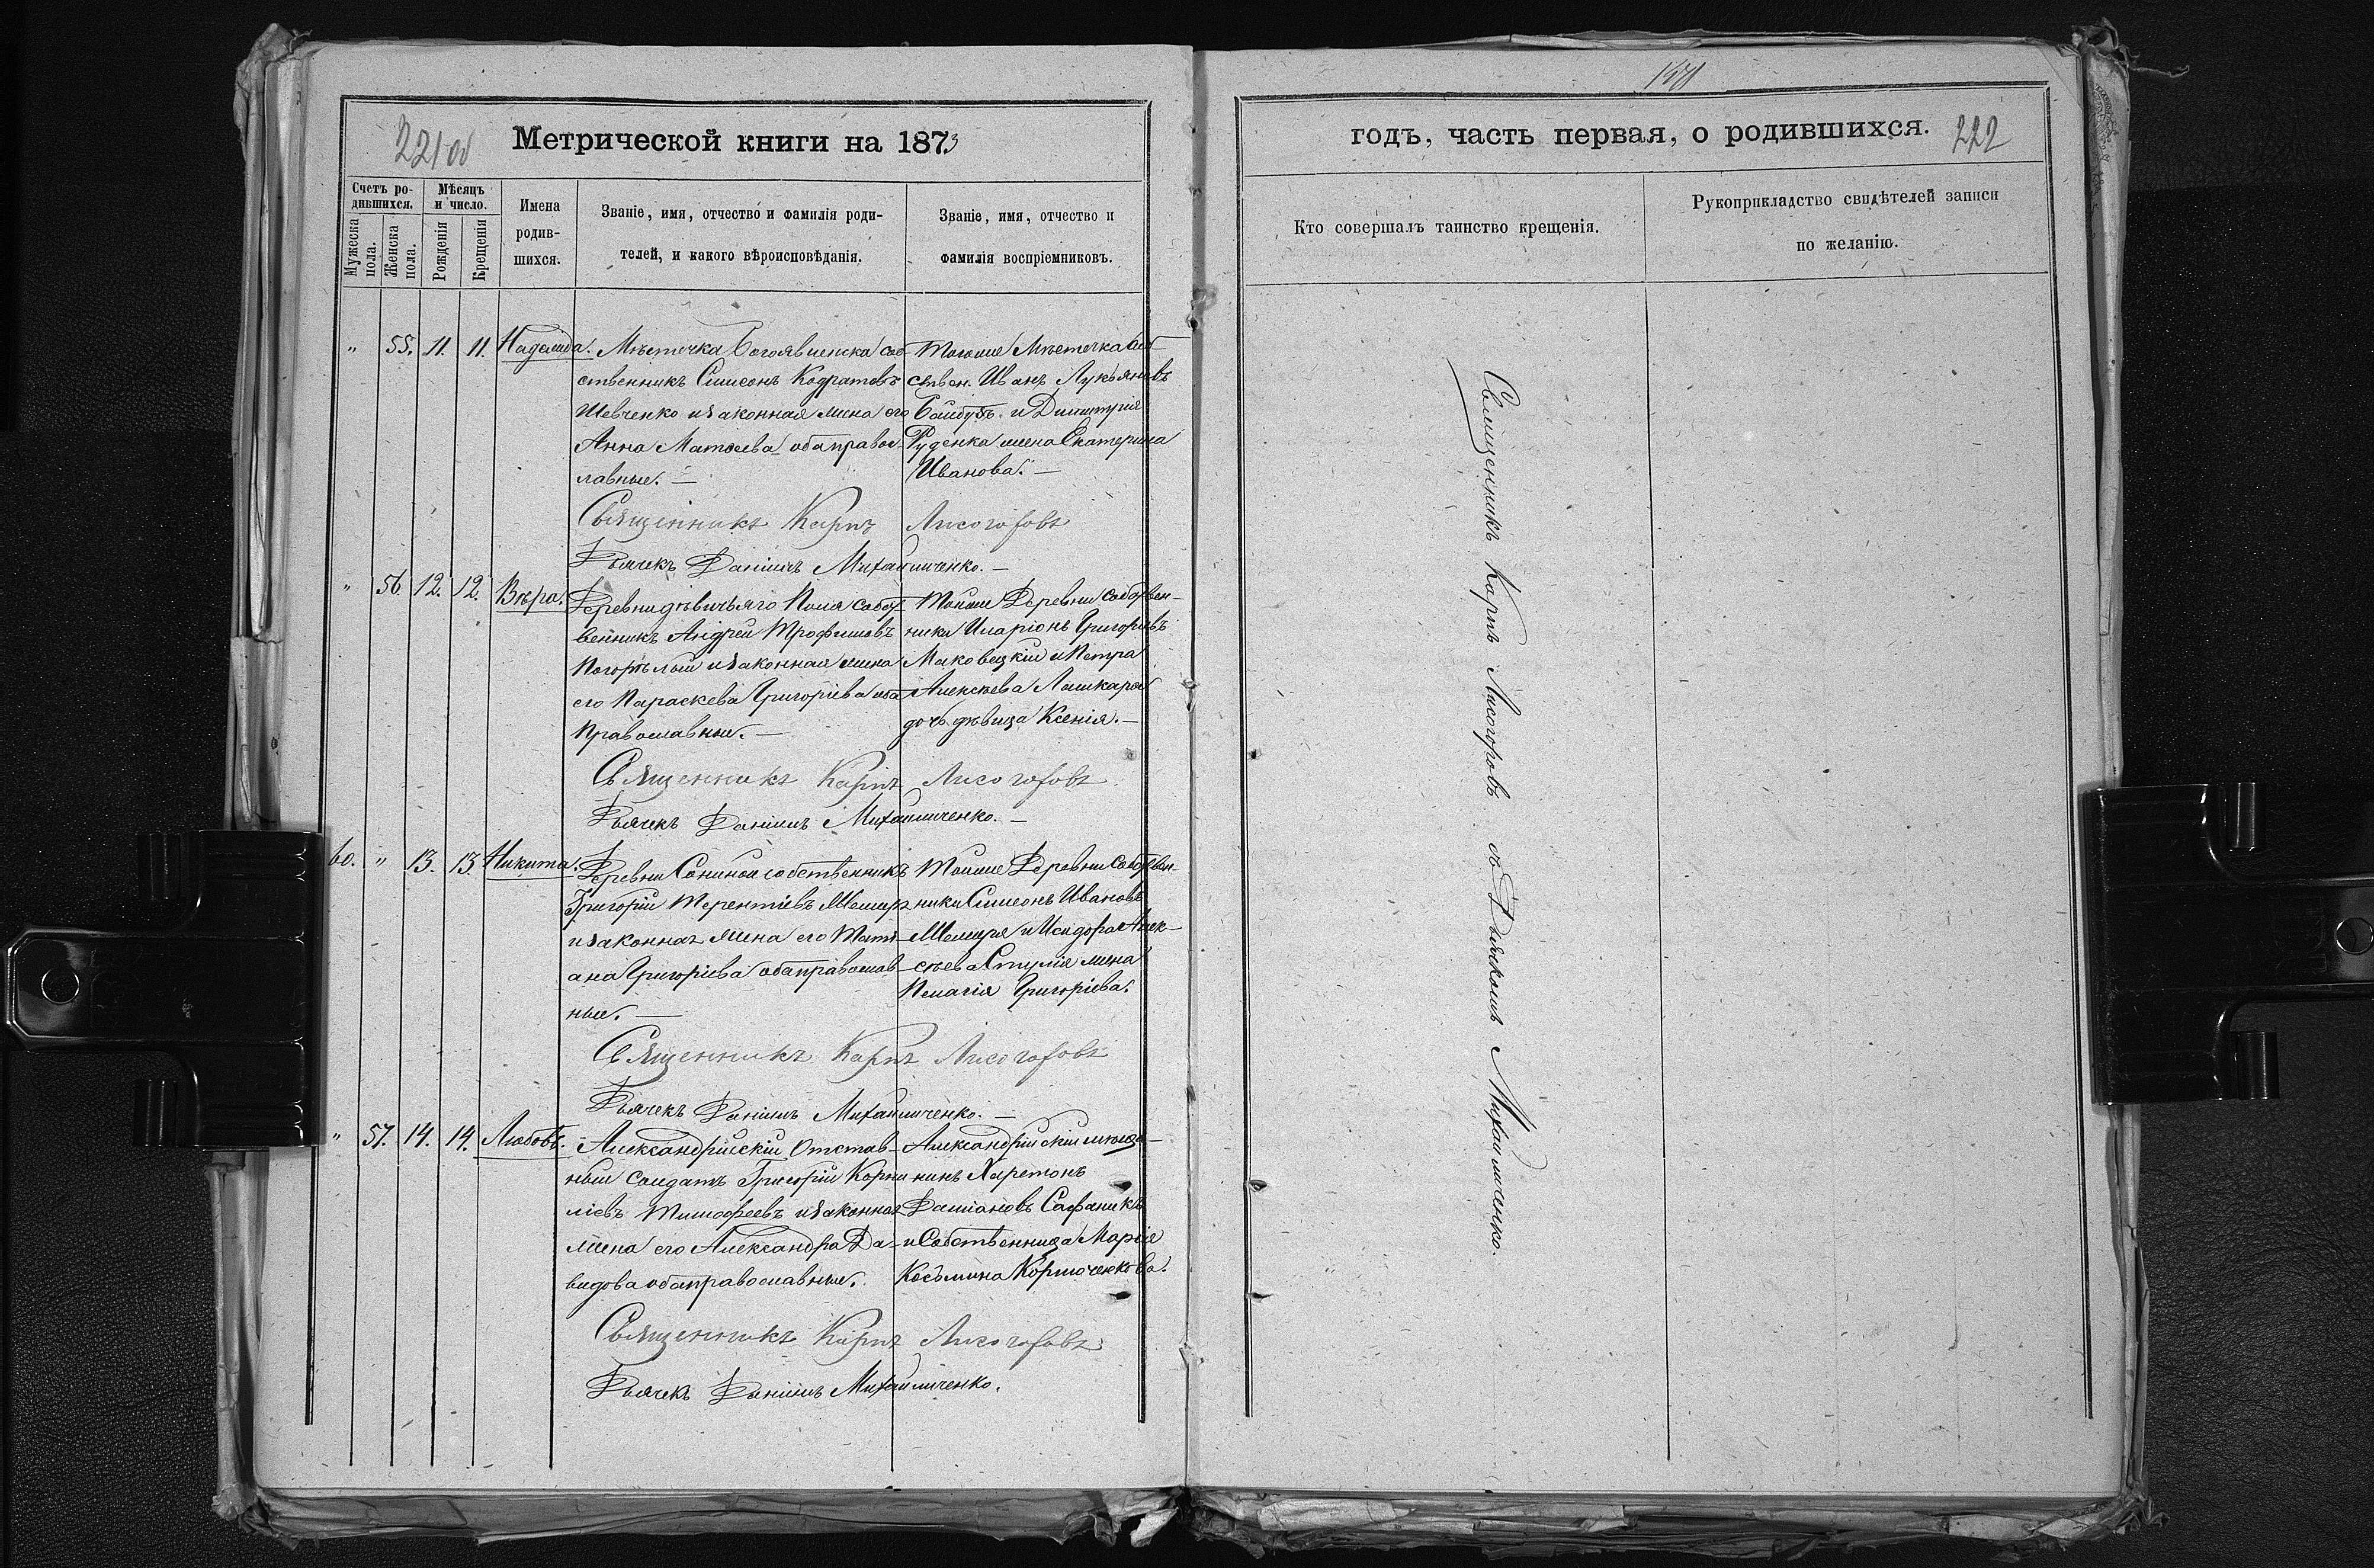 221 об
Метрической книги на 1873
Счетъ ро-
дившихся.
Мужеска пола.
Женска пола.
Мѣсяцъ
и число.
Рожденія
Крещенія
Имена
родив-
шихся.
Званіе, имя, отчество и фамилія роди-
телей, и какого вѣроисповѣданія.
Званіе, имя, отчество и
фамилія воспріемниковъ.
" 55. 11. 11. Надежда.
Мѣстечка Богоявленска соб-
ственникъ Симеонъ Кодратовъ
Шевченко и законная жена его
Анна Матѳеева оба правос-
лавные. —
Тогоже Мѣстечка соб-
ствен. Иванъ Лукьяновъ
и Димитрія
Руденка жена Екатерина
Иванова. —
Священникъ Карпъ Лисогоровъ
Дьячекъ Даніилъ Михайличенко. —
" 56. 12. 12. Вѣра.
Деревни Дѣвичьяго Поля собст-
венникъ Андрей Трофимовъ
Погорѣлый и законная жена
его Параскева Григоріева оба
Православные. —
Тойже Деревни собствен-
ники Иларіонъ Григорьевъ
Маковецкій и Петра
Алексѣева Лашкарев
дочь дѣвица Ксенія. —
Священникъ Карпъ Лисогоровъ
Дьячекъ Даніилъ Михайличенко. —
60. " 13. 13. Никита.
Деревни собственникъ
Григорій Терентіевъ
и законная жена его Тать-
ана Григоріева оба православ-
ные. —
Тойже Деревни собствен-
ники Симеонъ Ивановъ
и Исидора Алек-
сѣева жена
Пелагія Григоріева.
Священникъ Карпъ Лисогоровъ
Дьячекъ Даніилъ Михайличенко. —
" 57. 14. 14. Любовь.
Александрійскій Отстав-
ный солдатъ Григорій Корни
ліевъ Тимофеевъ и законная
жена его Александра Да-
видова оба православные.
Александрійскій мѣща-
нинъ Харетонъ
Даміановъ Сафаникъ
и Собственница Марія
Косьмина Кормоченкова.
Священникъ Карпъ Лисогоровъ
Дьячекъ Даніилъ Михайличенко.
годъ, часть первая, о родившихся.
222
Кто совершалъ таинство крещенія.
Рукоприкладство свидѣтелей записи
по желанію.
Священникъ Карпъ Лисогоровъ съ Дьячкомъ Михайличенко.